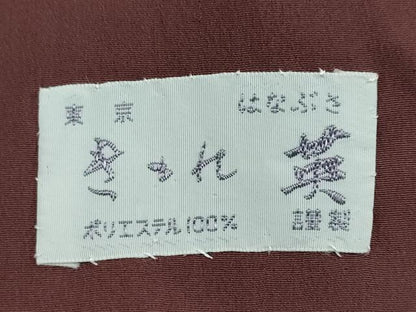 東京 はなぶさ
きぬれ 英
ポリエステル100% 謹製